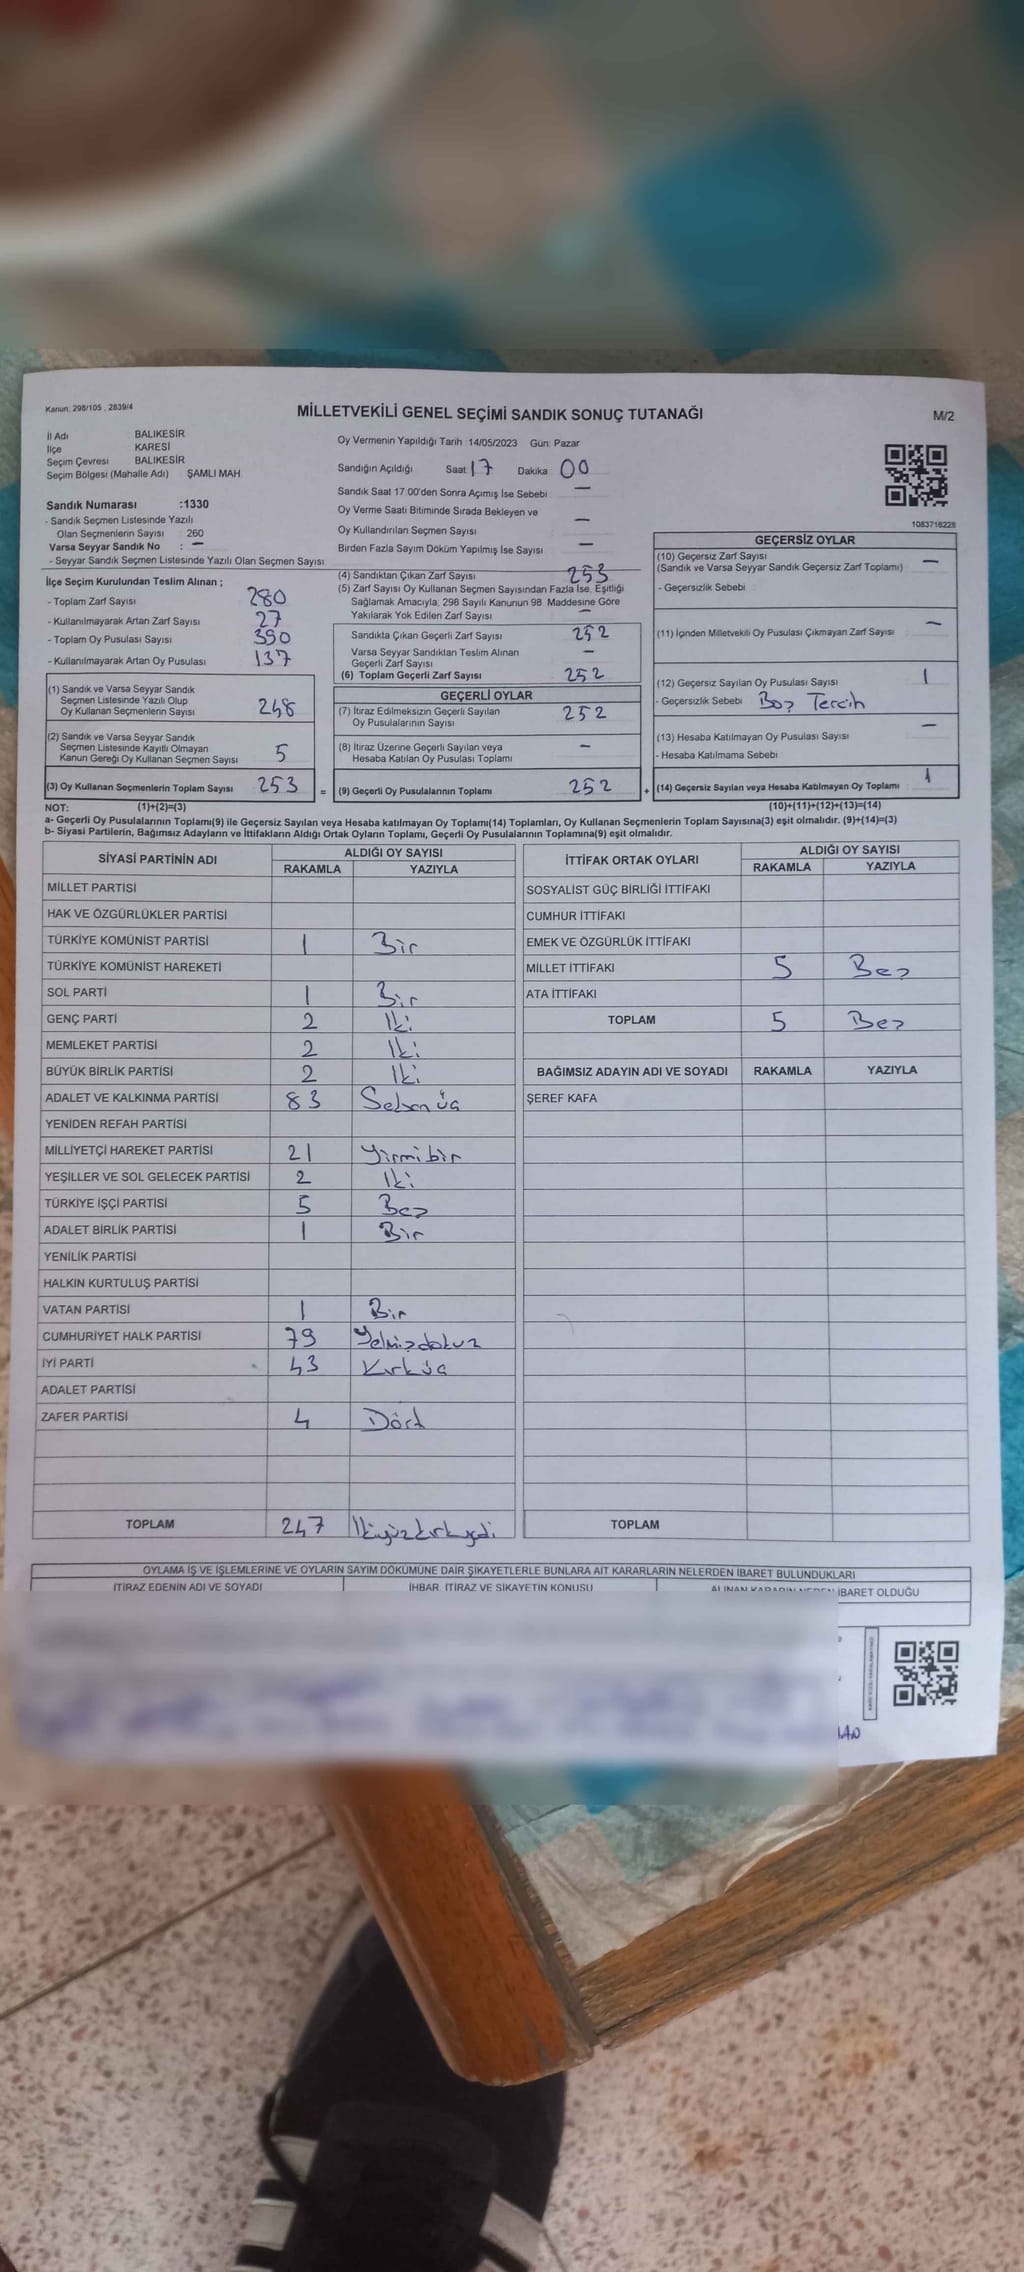 Kanun. 298/105 , 2839/4
MİLLETVEKİLİ GENEL SEÇİMİ SANDIK SONUÇ TUTANAĞI
M/2
İl Adı BALIKESİR
İlçe KARESİ
Seçim Çevresi BALIKESİR
Seçim Bölgesi (Mahalle Adı) ŞAMLI MAH.
Sandık Numarası :1330
- Sandık Seçmen Listesinde Yazılı
Olan Seçmenlerin Sayısı 260
Varsa Seyyar Sandık No : —
- Seyyar Sandık Seçmen Listesinde Yazılı Olan Seçmen Sayısı
Oy Vermenin Yapıldığı Tarih :14/05/2023 Gün: Pazar
Sandığın Açıldığı Saat 17 Dakika 00
Sandık Saat 17:00'den Sonra Açılmış İse Sebebi —
Oy Verme Saati Bitiminde Sırada Bekleyen ve
Oy Kullandırılan Seçmen Sayısı —
Birden Fazla Sayım Döküm Yapılmış İse Sayısı —
1083716228
İlçe Seçim Kurulundan Teslim Alınan ;
- Toplam Zarf Sayısı 280
- Kullanılmayarak Artan Zarf Sayısı 27
- Toplam Oy Pusulası Sayısı 390
- Kullanılmayarak Artan Oy Pusulası 137
(1) Sandık ve Varsa Seyyar Sandık
Seçmen Listesinde Yazılı Olup
Oy Kullanan Seçmenlerin Sayısı 248
(2) Sandık ve Varsa Seyyar Sandık
Seçmen Listesinde Kayıtlı Olmayan
Kanun Gereği Oy Kullanan Seçmen Sayısı 5
(3) Oy Kullanan Seçmenlerin Toplam Sayısı 253 =
(4) Sandıktan Çıkan Zarf Sayısı 253
(5) Zarf Sayısı Oy Kullanan Seçmen Sayısından Fazla İse, Eşitliği
Sağlamak Amacıyla, 298 Sayılı Kanunun 98. Maddesine Göre
Yakılarak Yok Edilen Zarf Sayısı —
Sandıkta Çıkan Geçerli Zarf Sayısı 252
Varsa Seyyar Sandıktan Teslim Alınan
Geçerli Zarf Sayısı —
(6) Toplam Geçerli Zarf Sayısı 252
GEÇERLİ OYLAR
(7) İtiraz Edilmeksizin Geçerli Sayılan
Oy Pusulalarının Sayısı 252
(8) İtiraz Üzerine Geçerli Sayılan veya
Hesaba Katılan Oy Pusulası Toplamı —
(9) Geçerli Oy Pusulalarının Toplamı 252 +
GEÇERSİZ OYLAR
(10) Geçersiz Zarf Sayısı —
(Sandık ve Varsa Seyyar Sandık Geçersiz Zarf Toplamı)
- Geçersizlik Sebebi :
(11) İçinden Milletvekili Oy Pusulası Çıkmayan Zarf Sayısı —
(12) Geçersiz Sayılan Oy Pusulası Sayısı 1
- Geçersizlik Sebebi Boş Tercih
(13) Hesaba Katılmayan Oy Pusulası Sayısı —
- Hesaba Katılmama Sebebi
(14) Geçersiz Sayılan veya Hesaba Katılmayan Oy Toplamı 1
NOT: (1)+(2)=(3) (10)+(11)+(12)+(13)=(14)
a- Geçerli Oy Pusulalarının Toplamı(9) ile Geçersiz Sayılan veya Hesaba katılmayan Oy Toplamı(14) Toplamları, Oy Kullanan Seçmenlerin Toplam Sayısına(3) eşit olmalıdır. (9)+(14)=(3)
b- Siyasi Partilerin, Bağımsız Adayların ve İttifakların Aldığı Ortak Oyların Toplamı, Geçerli Oy Pusulalarının Toplamına(9) eşit olmalıdır.
SİYASİ PARTİNİN ADI ALDIĞI OY SAYISI
RAKAMLA YAZIYLA
MİLLET PARTİSİ
HAK VE ÖZGÜRLÜKLER PARTİSİ
TÜRKİYE KOMÜNİST PARTİSİ 1 Bir
TÜRKİYE KOMÜNİST HAREKETİ
SOL PARTİ 1 Bir
GENÇ PARTİ 2 İki
MEMLEKET PARTİSİ 2 İki
BÜYÜK BİRLİK PARTİSİ 2 İki
ADALET VE KALKINMA PARTİSİ 83 Seksenüç
YENİDEN REFAH PARTİSİ
MİLLİYETÇİ HAREKET PARTİSİ 21 Yirmibir
YEŞİLLER VE SOL GELECEK PARTİSİ 2 İki
TÜRKİYE İŞÇİ PARTİSİ 5 Beş
ADALET BİRLİK PARTİSİ 1 Bir
YENİLİK PARTİSİ
HALKIN KURTULUŞ PARTİSİ
VATAN PARTİSİ 1 Bir
CUMHURİYET HALK PARTİSİ 79 Yetmişdokuz
İYİ PARTİ 43 Kırküç
ADALET PARTİSİ
ZAFER PARTİSİ 4 Dört
TOPLAM 247 İkiyüzkırkyedi
İTTİFAK ORTAK OYLARI ALDIĞI OY SAYISI
RAKAMLA YAZIYLA
SOSYALİST GÜÇ BİRLİĞİ İTTİFAKI
CUMHUR İTTİFAKI
EMEK VE ÖZGÜRLÜK İTTİFAKI
MİLLET İTTİFAKI 5 Beş
ATA İTTİFAKI
TOPLAM 5 Beş
BAĞIMSIZ ADAYIN ADI VE SOYADI RAKAMLA YAZIYLA
ŞEREF KAFA
TOPLAM
OYLAMA İŞ VE İŞLEMLERİNE VE OYLARIN SAYIM DÖKÜMÜNE DAİR ŞİKAYETLERLE BUNLARA AİT KARARLARIN NELERDEN İBARET BULUNDUKLARI
İTİRAZ EDENİN ADI VE SOYADI İHBAR, İTİRAZ VE ŞİKAYETİN KONUSU ALINAN KARARIN NEDEN İBARET OLDUĞU